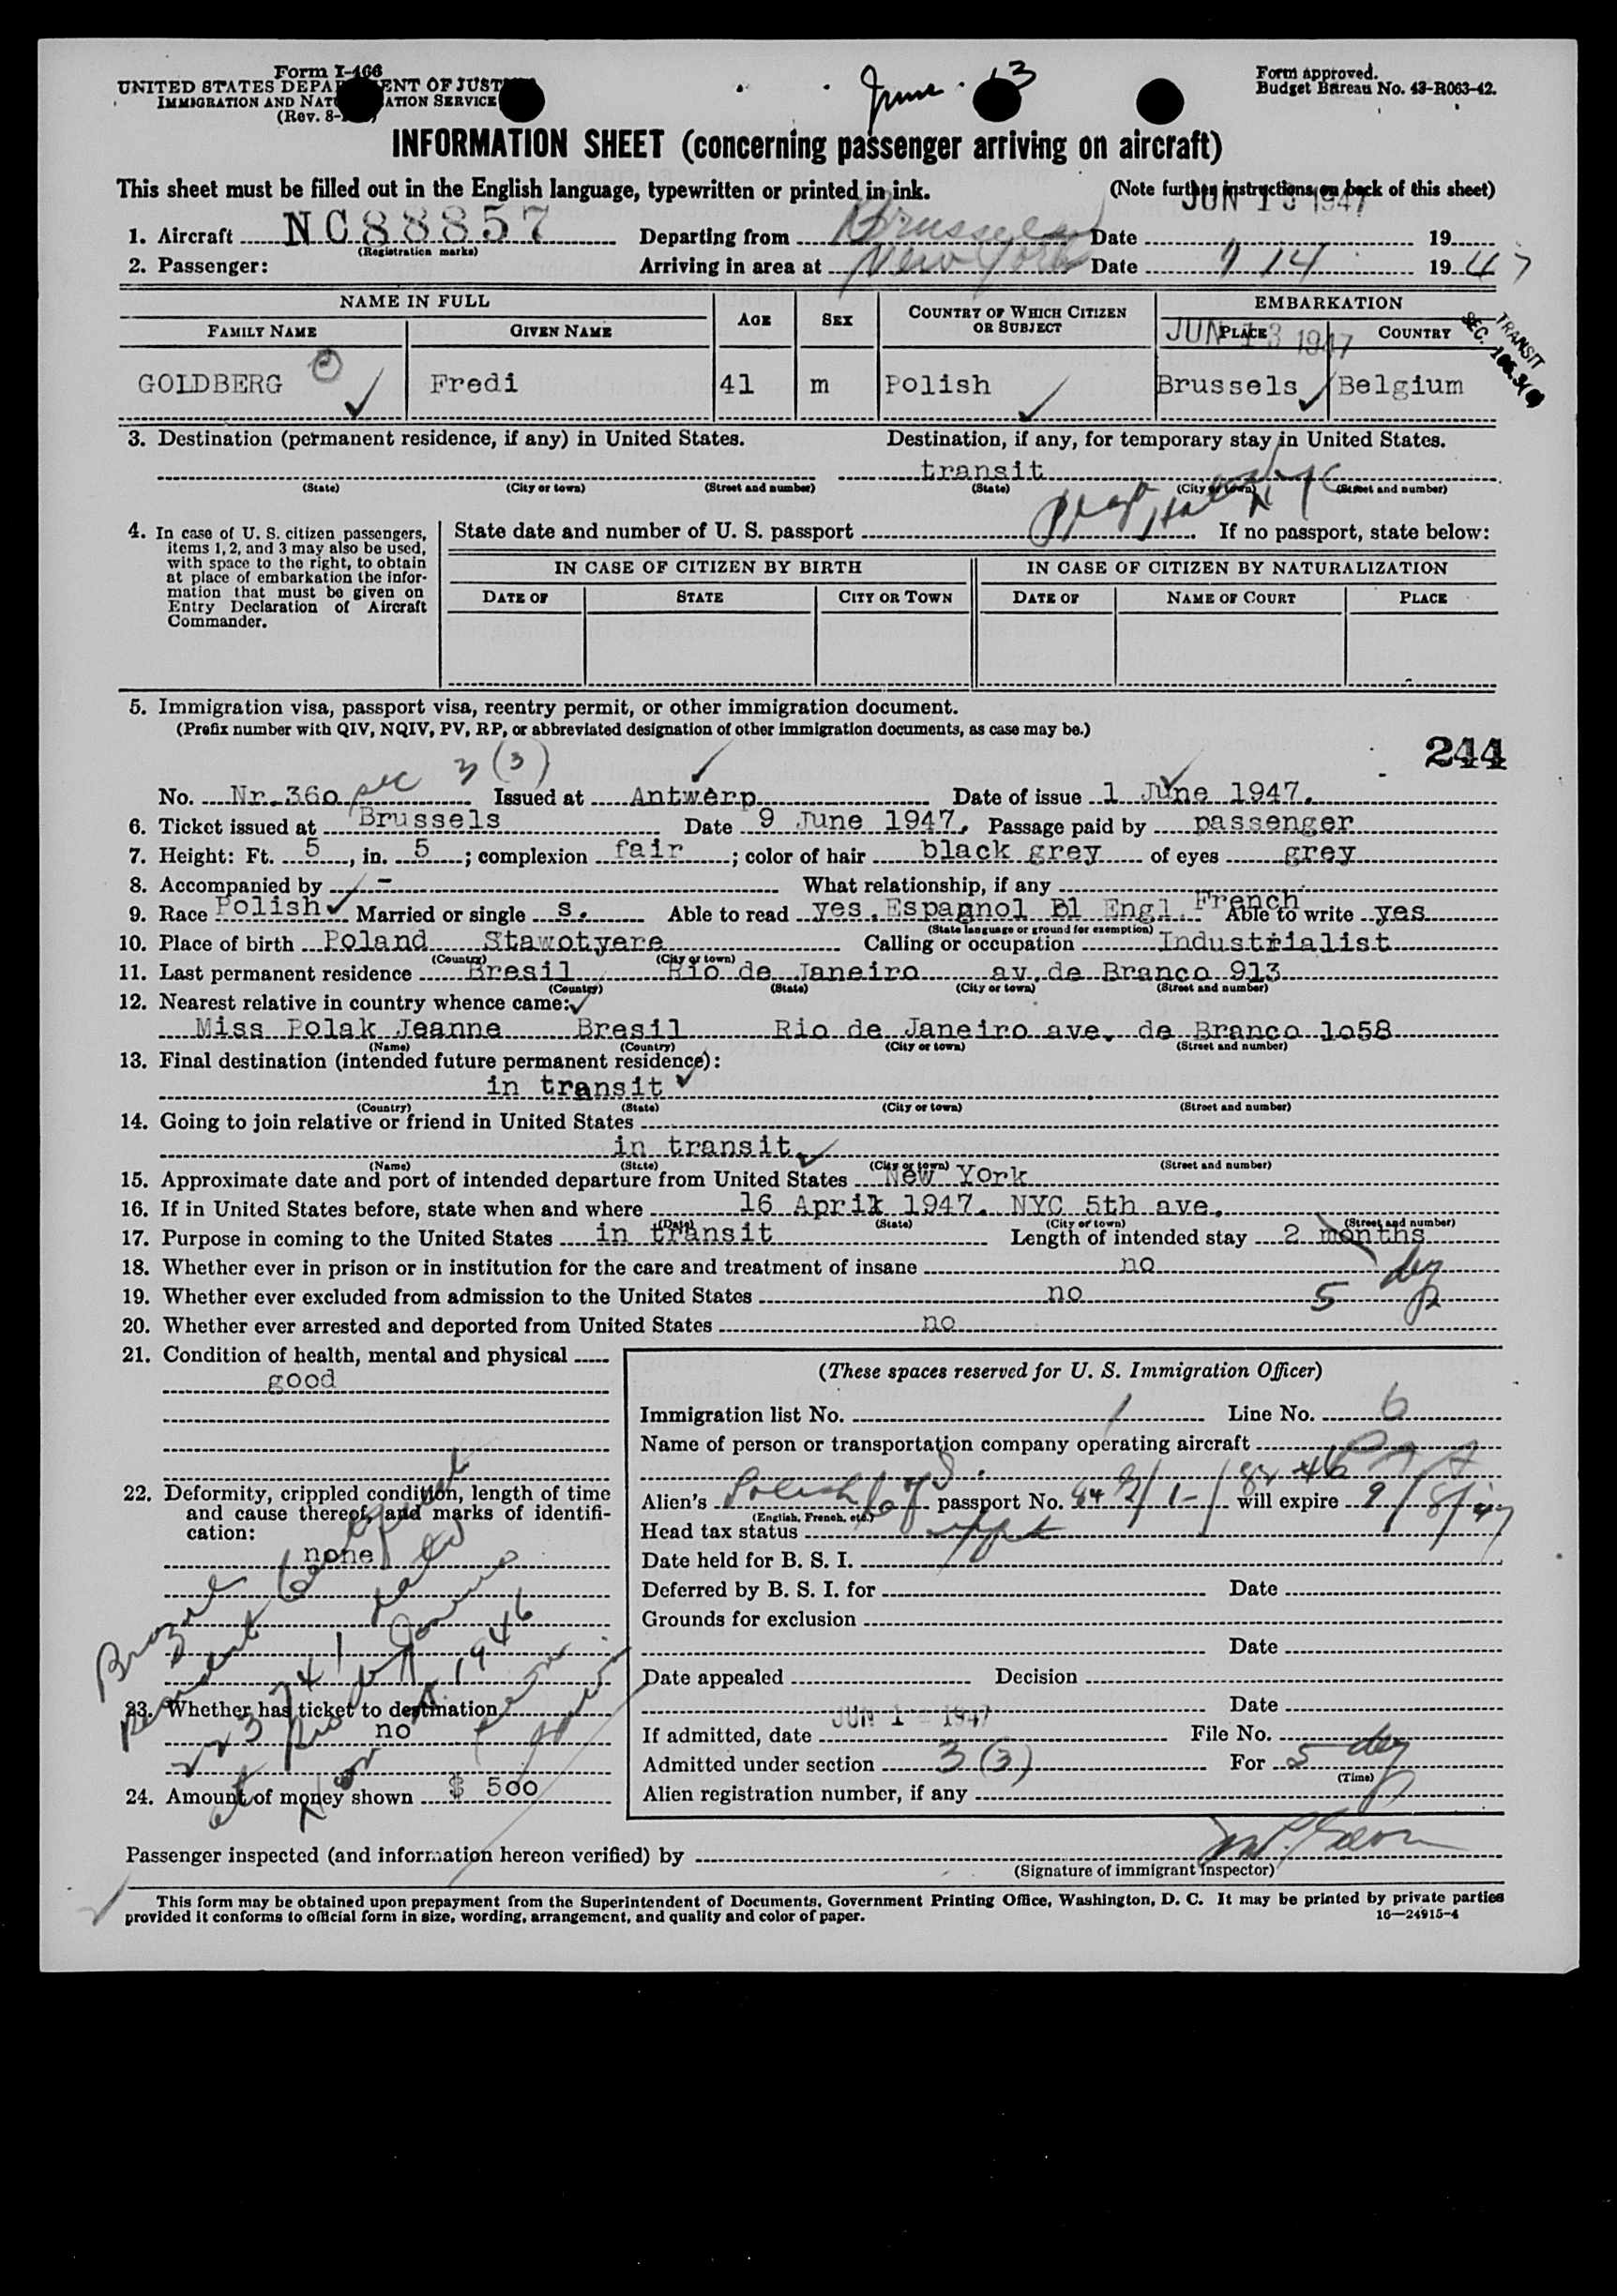 Form I-466
UNITED STATES DEPA ENT OF JUST
IMMIGRATION AND NAT ATION SERVICE
(Rev. 8-
June 13
Form approved.
Budget Bureau No. 43-R063-42.
INFORMATION SHEET (concerning passenger arriving on aircraft)
This sheet must be filled out in the English language, typewritten or printed in ink.
(Note further instructions on back of this sheet)
JUN 13 1947
1. Aircraft NC88857 Departing from Brussels Date 19
(Registration marks)
2. Passenger: Arriving in area at New York Date 14 1947
NAME IN FULL
AGE
SEX
COUNTRY OF WHICH CITIZEN OR SUBJECT
EMBARKATION
FAMILY NAME
GIVEN NAME
PLACE
COUNTRY
JUN 13 1947
TRANSIT
SEC.
GOLDBERG Fredi 41 m Polish Brussels Belgium
3. Destination (permanent residence, if any) in United States.
Destination, if any, for temporary stay in United States.
transit
(State) (City or town) (Street and number)
(State) (City or town) (Street and number)
4. In case of U. S. citizen passengers,
items 1, 2, and 3 may also be used,
with space to the right, to obtain
at place of embarkation the infor-
mation that must be given on
Entry Declaration of Aircraft
Commander.
State date and number of U. S. passport If no passport, state below:
IN CASE OF CITIZEN BY BIRTH
IN CASE OF CITIZEN BY NATURALIZATION
DATE OF STATE CITY OR TOWN DATE OF NAME OF COURT PLACE
5. Immigration visa, passport visa, reentry permit, or other immigration document.
(Prefix number with QIV, NQIV, PV, RP, or abbreviated designation of other immigration documents, as case may be.)
244
No. Nr.36o sec 3 (3) Issued at Antwerp Date of issue 1 June 1947.
6. Ticket issued at Brussels Date 9 June 1947. Passage paid by passenger
7. Height: Ft. 5, in. 5; complexion fair; color of hair black grey of eyes grey
8. Accompanied by - What relationship, if any
9. Race Polish Married or single s. Able to read yes.Espagnol Bl Engl. French Able to write yes
(State language or ground for exemption)
10. Place of birth Poland Stawotyere Calling or occupation Industrialist
(Country) (City or town)
11. Last permanent residence Bresil Rio de Janeiro av.de Branco 913
(Country) (State) (City or town) (Street and number)
12. Nearest relative in country whence came:
Miss Polak Jeanne Bresil Rio de Janeiro ave. de Branco 1o58
(Name) (Country) (City or town) (Street and number)
13. Final destination (intended future permanent residence):
in transit
(Country) (State) (City or town) (Street and number)
14. Going to join relative or friend in United States
in transit
(Name) (State) (City or town) (Street and number)
15. Approximate date and port of intended departure from United States New York
16. If in United States before, state when and where 16 April 1947. NYC 5th ave.
(Date) (State) (City or town) (Street and number)
17. Purpose in coming to the United States in transit Length of intended stay 2 months
18. Whether ever in prison or in institution for the care and treatment of insane no
5 days
19. Whether ever excluded from admission to the United States no
20. Whether ever arrested and deported from United States no
21. Condition of health, mental and physical
good
22. Deformity, crippled condition, length of time
and cause thereof, and marks of identifi-
cation:
none
Brazil
1946
23. Whether has ticket to destination
no
24. Amount of money shown $ 500
(These spaces reserved for U. S. Immigration Officer)
Immigration list No. 1 Line No. 6
Name of person or transportation company operating aircraft
Alien's Polish passport No. will expire 9/8/47
(English, French, etc.)
Head tax status
Date held for B. S. I.
Deferred by B. S. I. for Date
Grounds for exclusion
Date
Date appealed Decision
Date
If admitted, date JUN 1 1947 File No.
Admitted under section 3 (3) For 5 days
(Time)
Alien registration number, if any
Passenger inspected (and information hereon verified) by
(Signature of immigrant inspector)
This form may be obtained upon prepayment from the Superintendent of Documents, Government Printing Office, Washington, D. C. It may be printed by private parties
provided it conforms to official form in size, wording, arrangement, and quality and color of paper.
16—24915-4